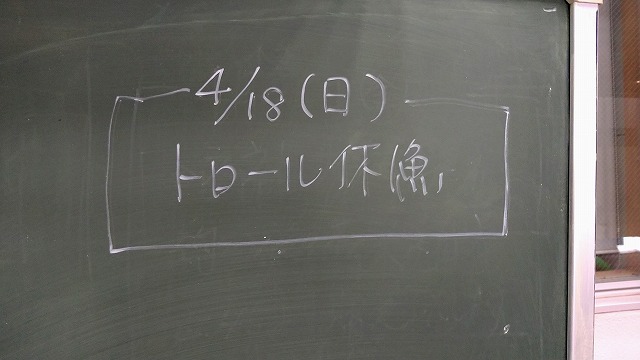 4/18(日)
トロール休漁